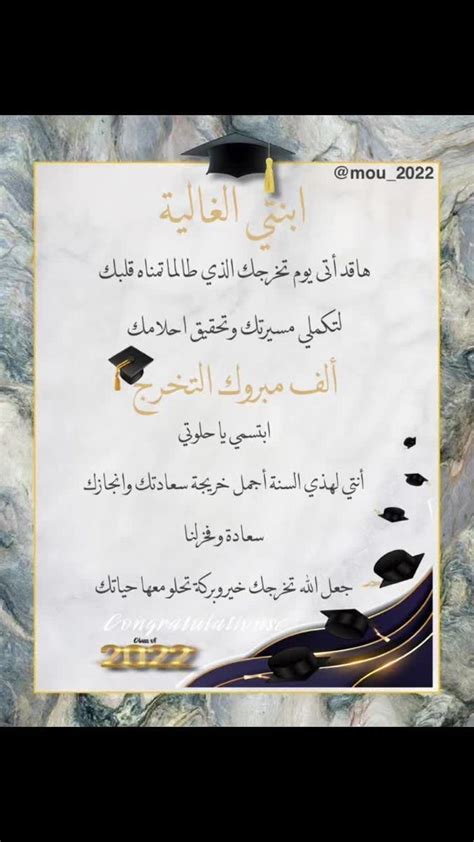 @mou_2022
ابنتي الغالية
هاقد أتى يوم تخرجك الذي طالما تمناه قلبك
لتكملي مسيرتك وتحقيق احلامك
ألف مبروك التخرج
ابتسمي يا حلوتي
أنتي لهذي السنة أجمل خريجة سعادتك وانجازك
سعادة وفخرلنا
جعل الله تخرجك خيروبركة تحلو معها حياتك
Congratulations
Class of
2022